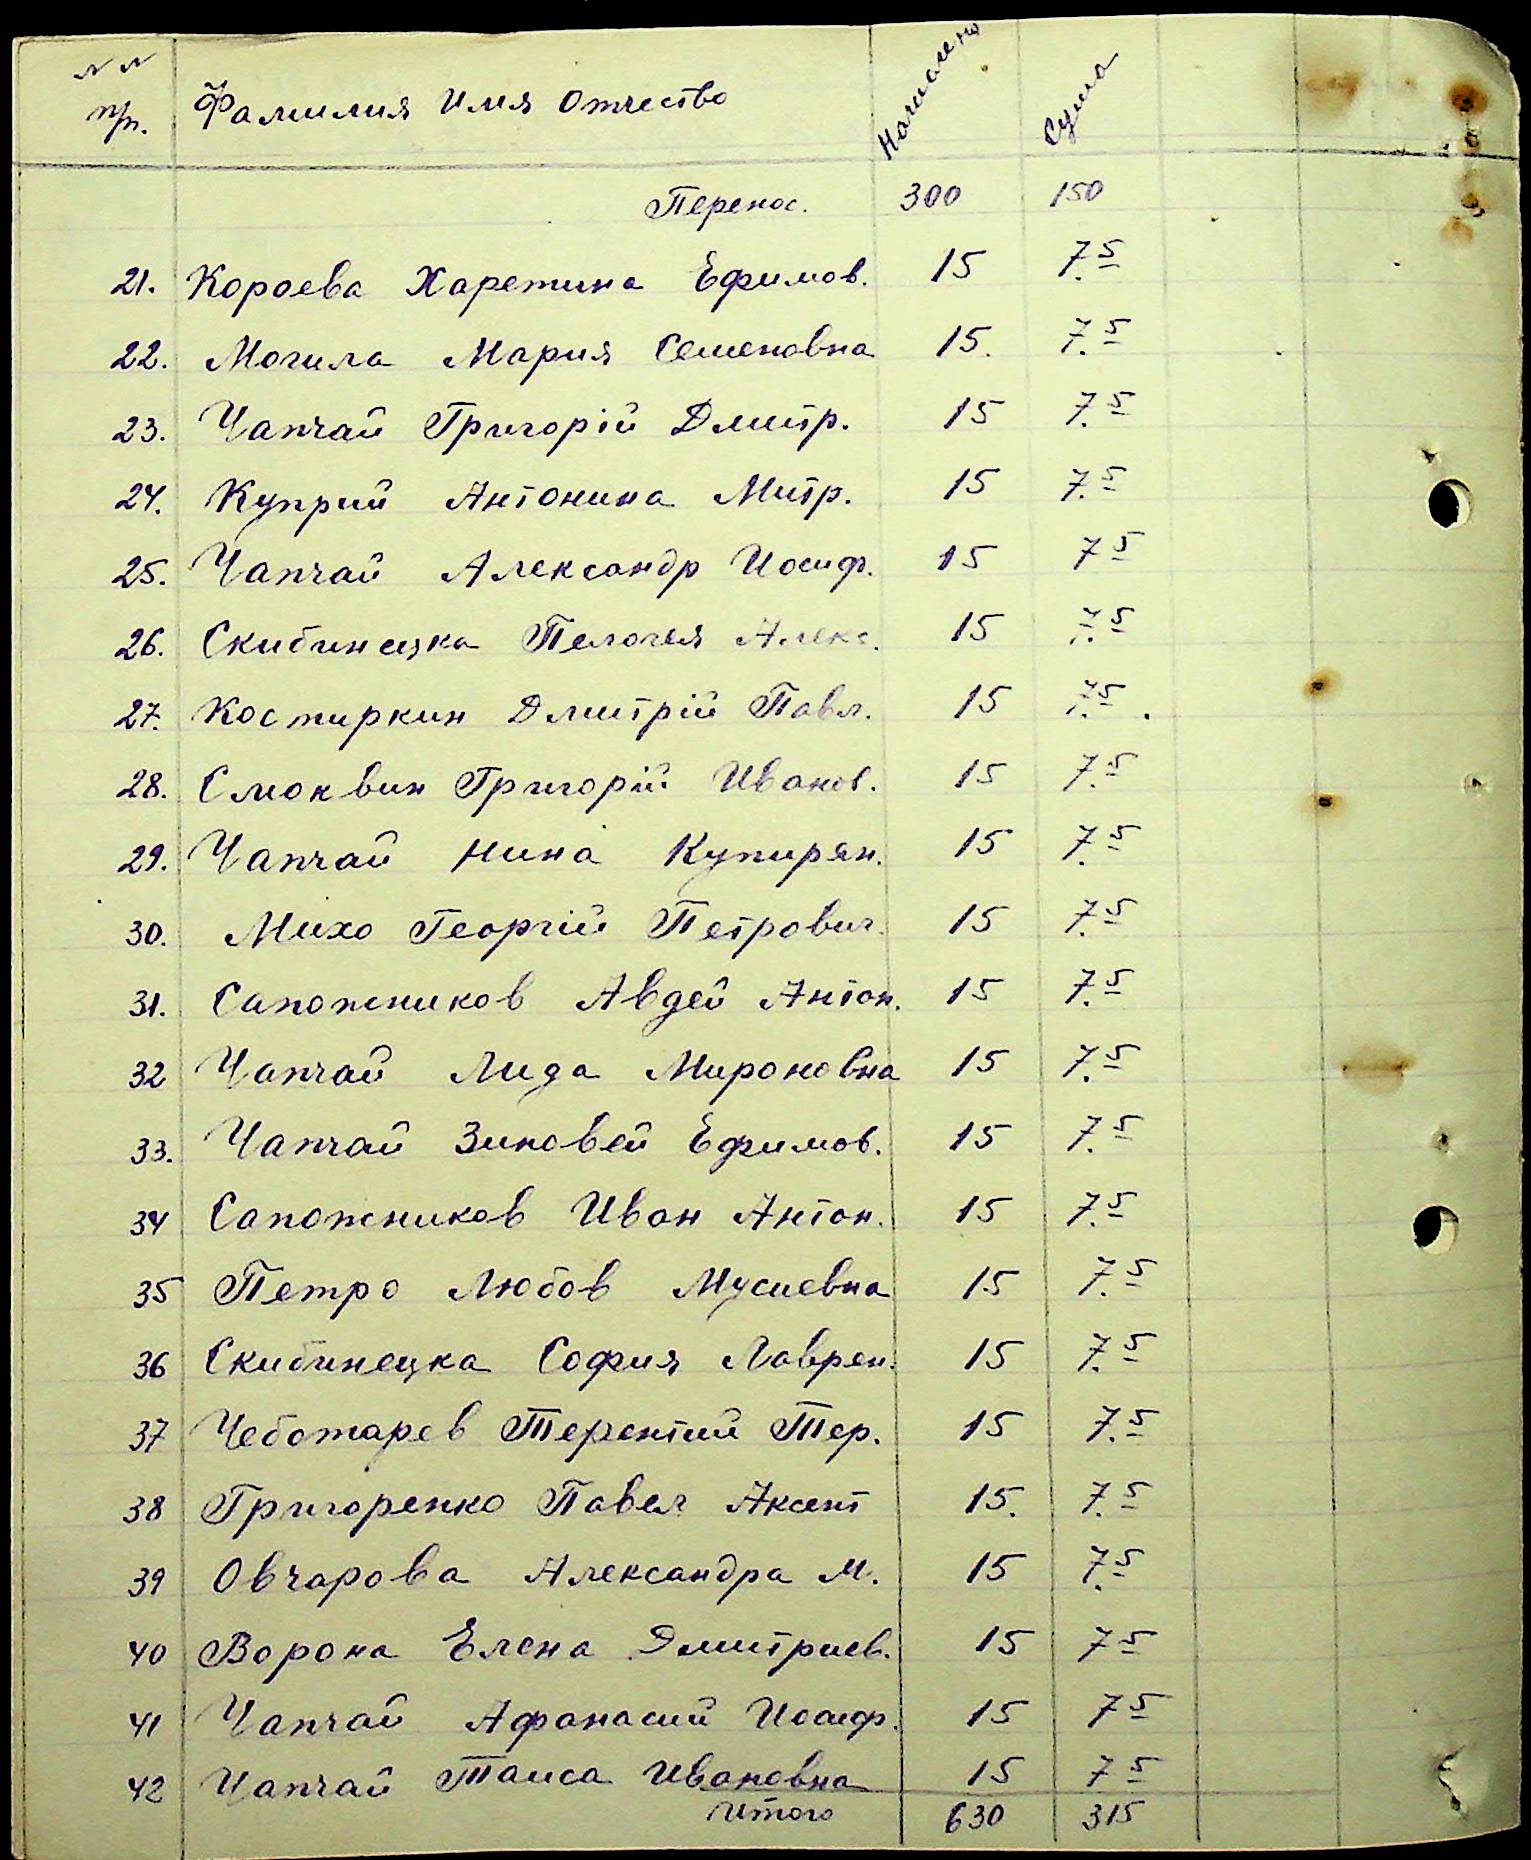 № №
пп. Фамилия Имя Отчество Начислено Сума
Перенос. 300 150
21. Короева Харетина Ефимов. 15 7.5
22. Могила Мария Семеновна 15. 7.5
23. Чапчай Григорій Дмитр. 15 7.5
24. Куприй Антонина Митр. 15 7.5
25. Чапчай Александр Иосиф. 15 7 5
26. Скибинецка Пелогея Алекс. 15 7.5
27. Костиркин Дмитрій Павл. 15 7.5
28. Смоквин Григорій Иванов. 15 7.5
29. Чапчай Нина Купирян. 15 7.5
30. Михо Георгій Петрович. 15 7.5
31. Сапожников Авдей Антон. 15 7.5
32 Чапчай Лида Мироновна 15 7.5
33. Чапчай Зиновей Ефимов. 15 7.5
34 Сапожников Иван Антон. 15 7.5
35 Петро Любов Мусиевна 15 7.5
36 Скибинецка София Лаврен. 15 7.5
37 Чеботарев Терентий Тер. 15 7.5
38 Григоренко Павел Аксент 15. 7.5
39 Овчарова Александра М. 15 7.5
40 Ворона Елена Дмитриев. 15 7 5
41 Чапчай Афанасий Иосиф. 15 7 5
42 Чапчай Таиса Ивановна 15 7 5
Итого 630 315